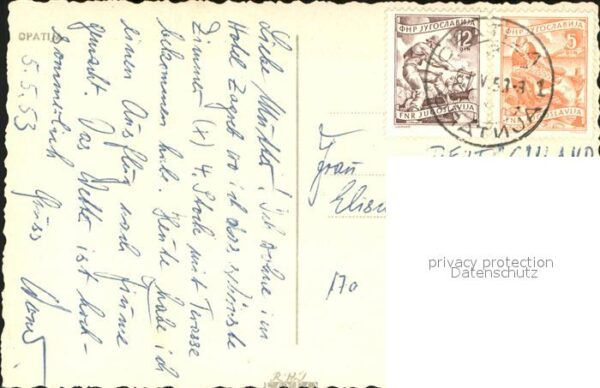 OPATIJA
5.5.53
Liebe Mutter! Ich wohne im
Hotel Zagreb wo ich das schönste
Zimmer (X) 4. Stock mit Terasse
bekommen habe. Heute habe ich
einen Ausflug nach Fiume
gemacht. Das Wetter ist hoch-
sommerlich Gruss
ФНР ЈУГОСЛАВИЈА
12
FNR JUGOSLAVIJA
ФНР ЈУГОСЛАВИЈА
5
FNR JUGOSLAVIJA
DEUTSCHLAND
Frau
170
privacy protection
Datenschutz